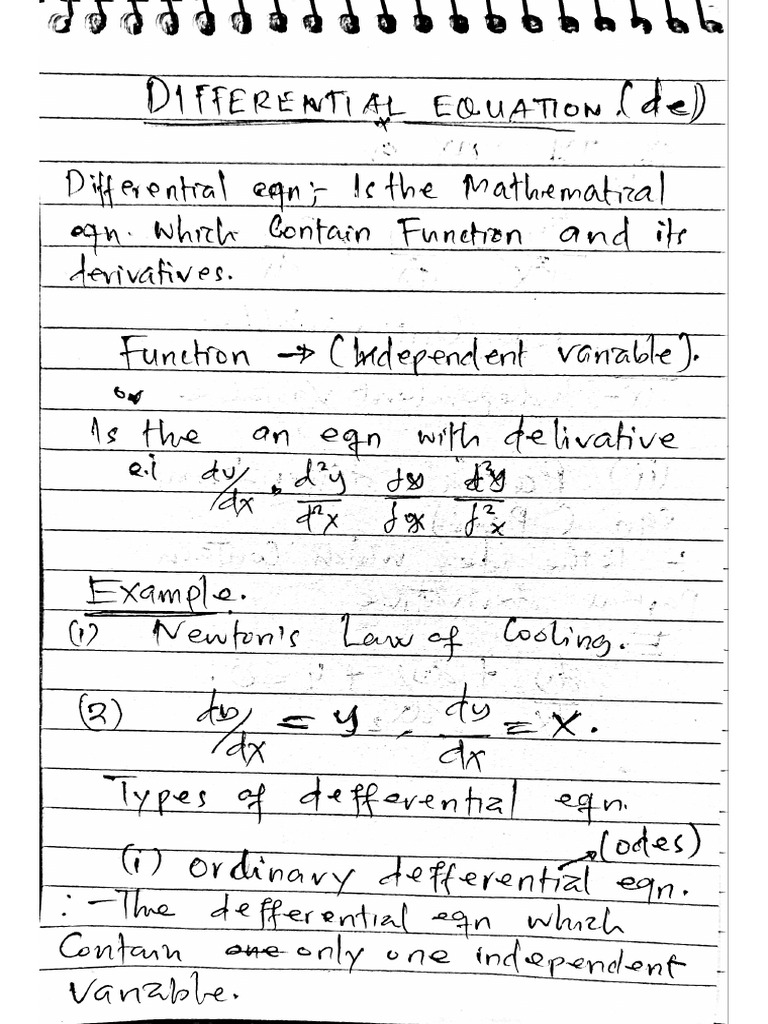 DIFFERENTIAL EQUATION. (de)
Differential eqn;- Is the Mathematical
eqn. which Contain Function and its
derivatives.
Function → (Independent variable).
or
Is the an eqn with delivative
e.i dy/dx . d²y/d²x
Example.
(1) Newton's Law of Cooling.
(2) dy/dx = y , dy/dx = x.
Types of defferential eqn.
(odes)
(i) ordinary defferential eqn.
:-The defferential eqn which
Contain one only one independent
Variable.